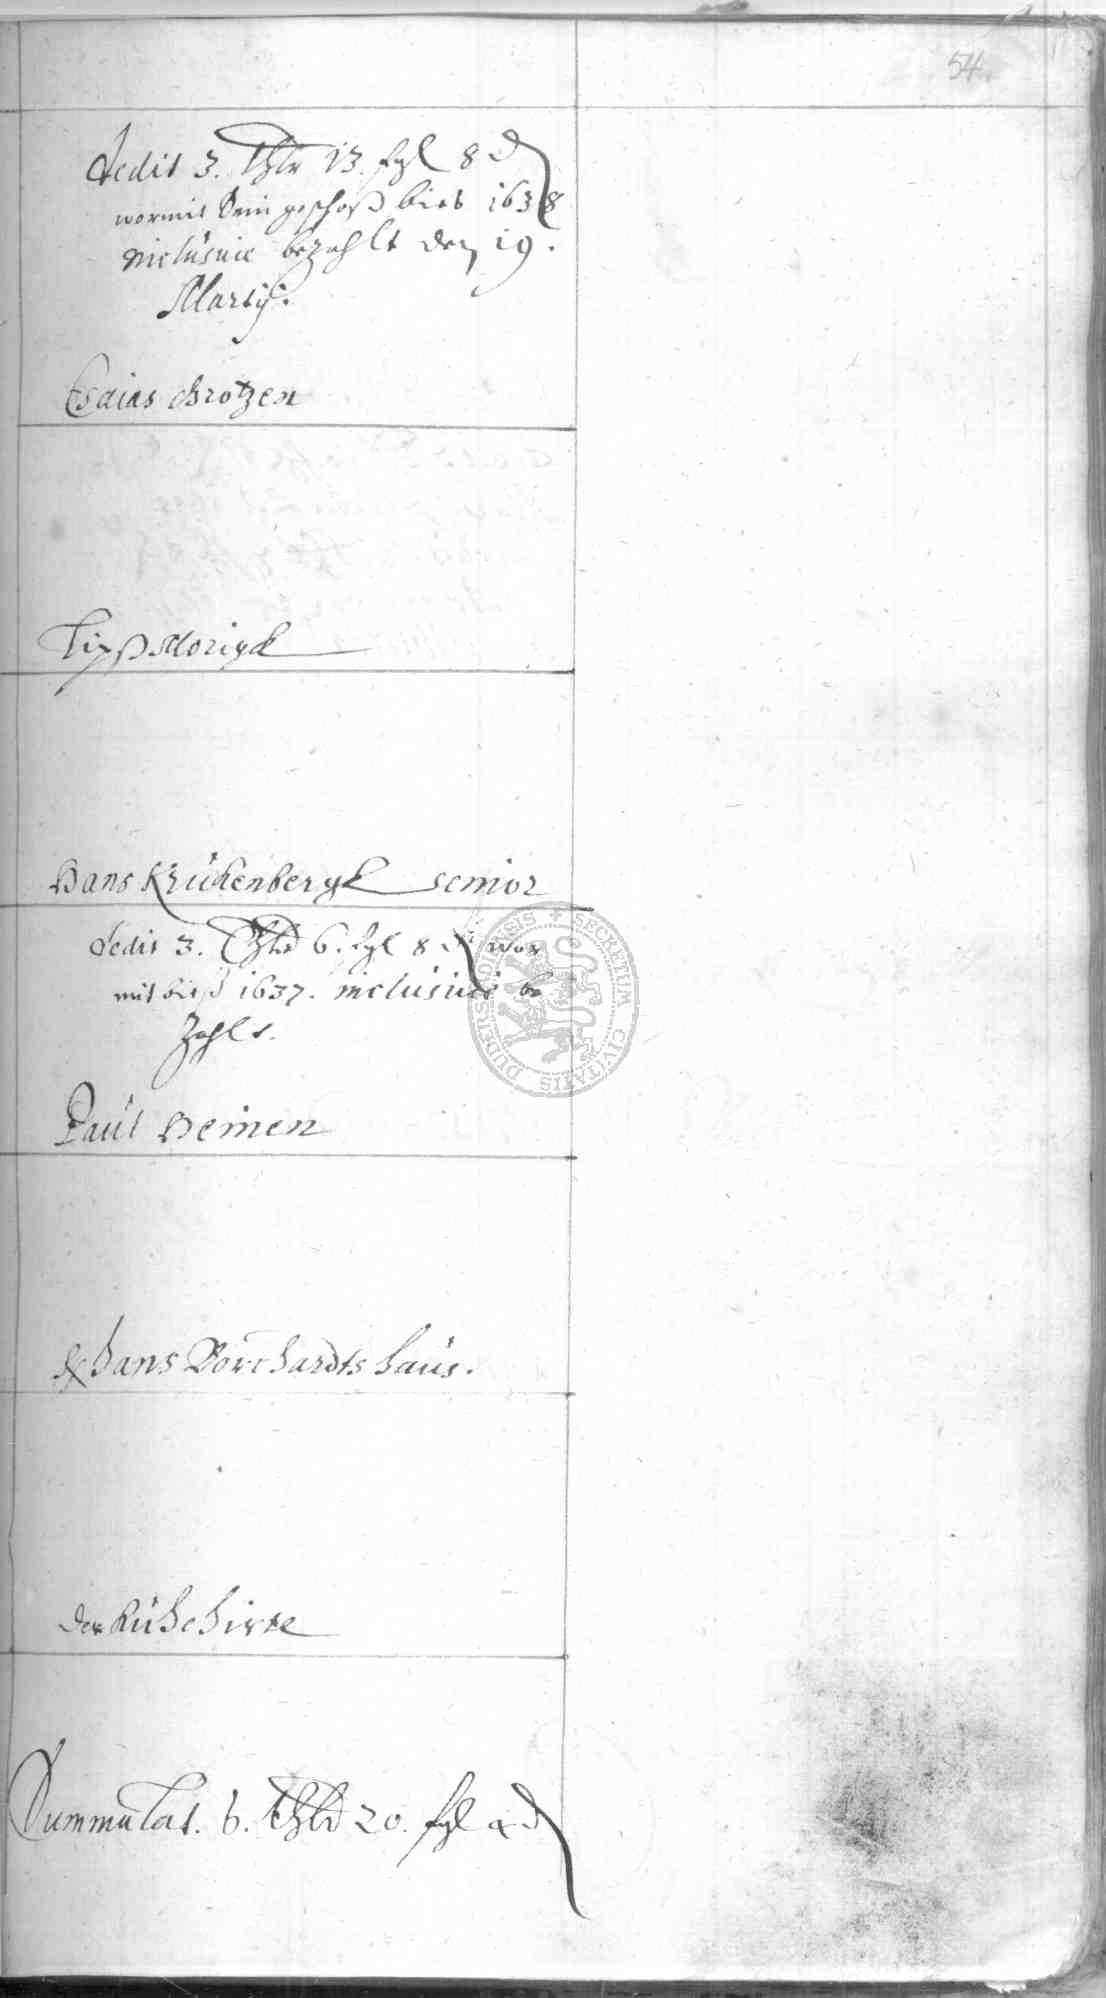 54
dedit 3. thlr 13. sgl 8 d
wormit Sein geschoß bies 1638
inclusiue bezahlt den 19.
Martij.
Esaias Brotzen
Hans Krükenbergk senior
dedit 3. thlr 6. sgl 8 d wor
mit bieß 1637. inclusiue be
zahlt.
Paul Heinen
Hans Borchardts haus.
der Kühehirte
Summa lat. 6. thlr 20. sgl 4 d
SECRETUM CIVITATIS DUDERSTADENSIS